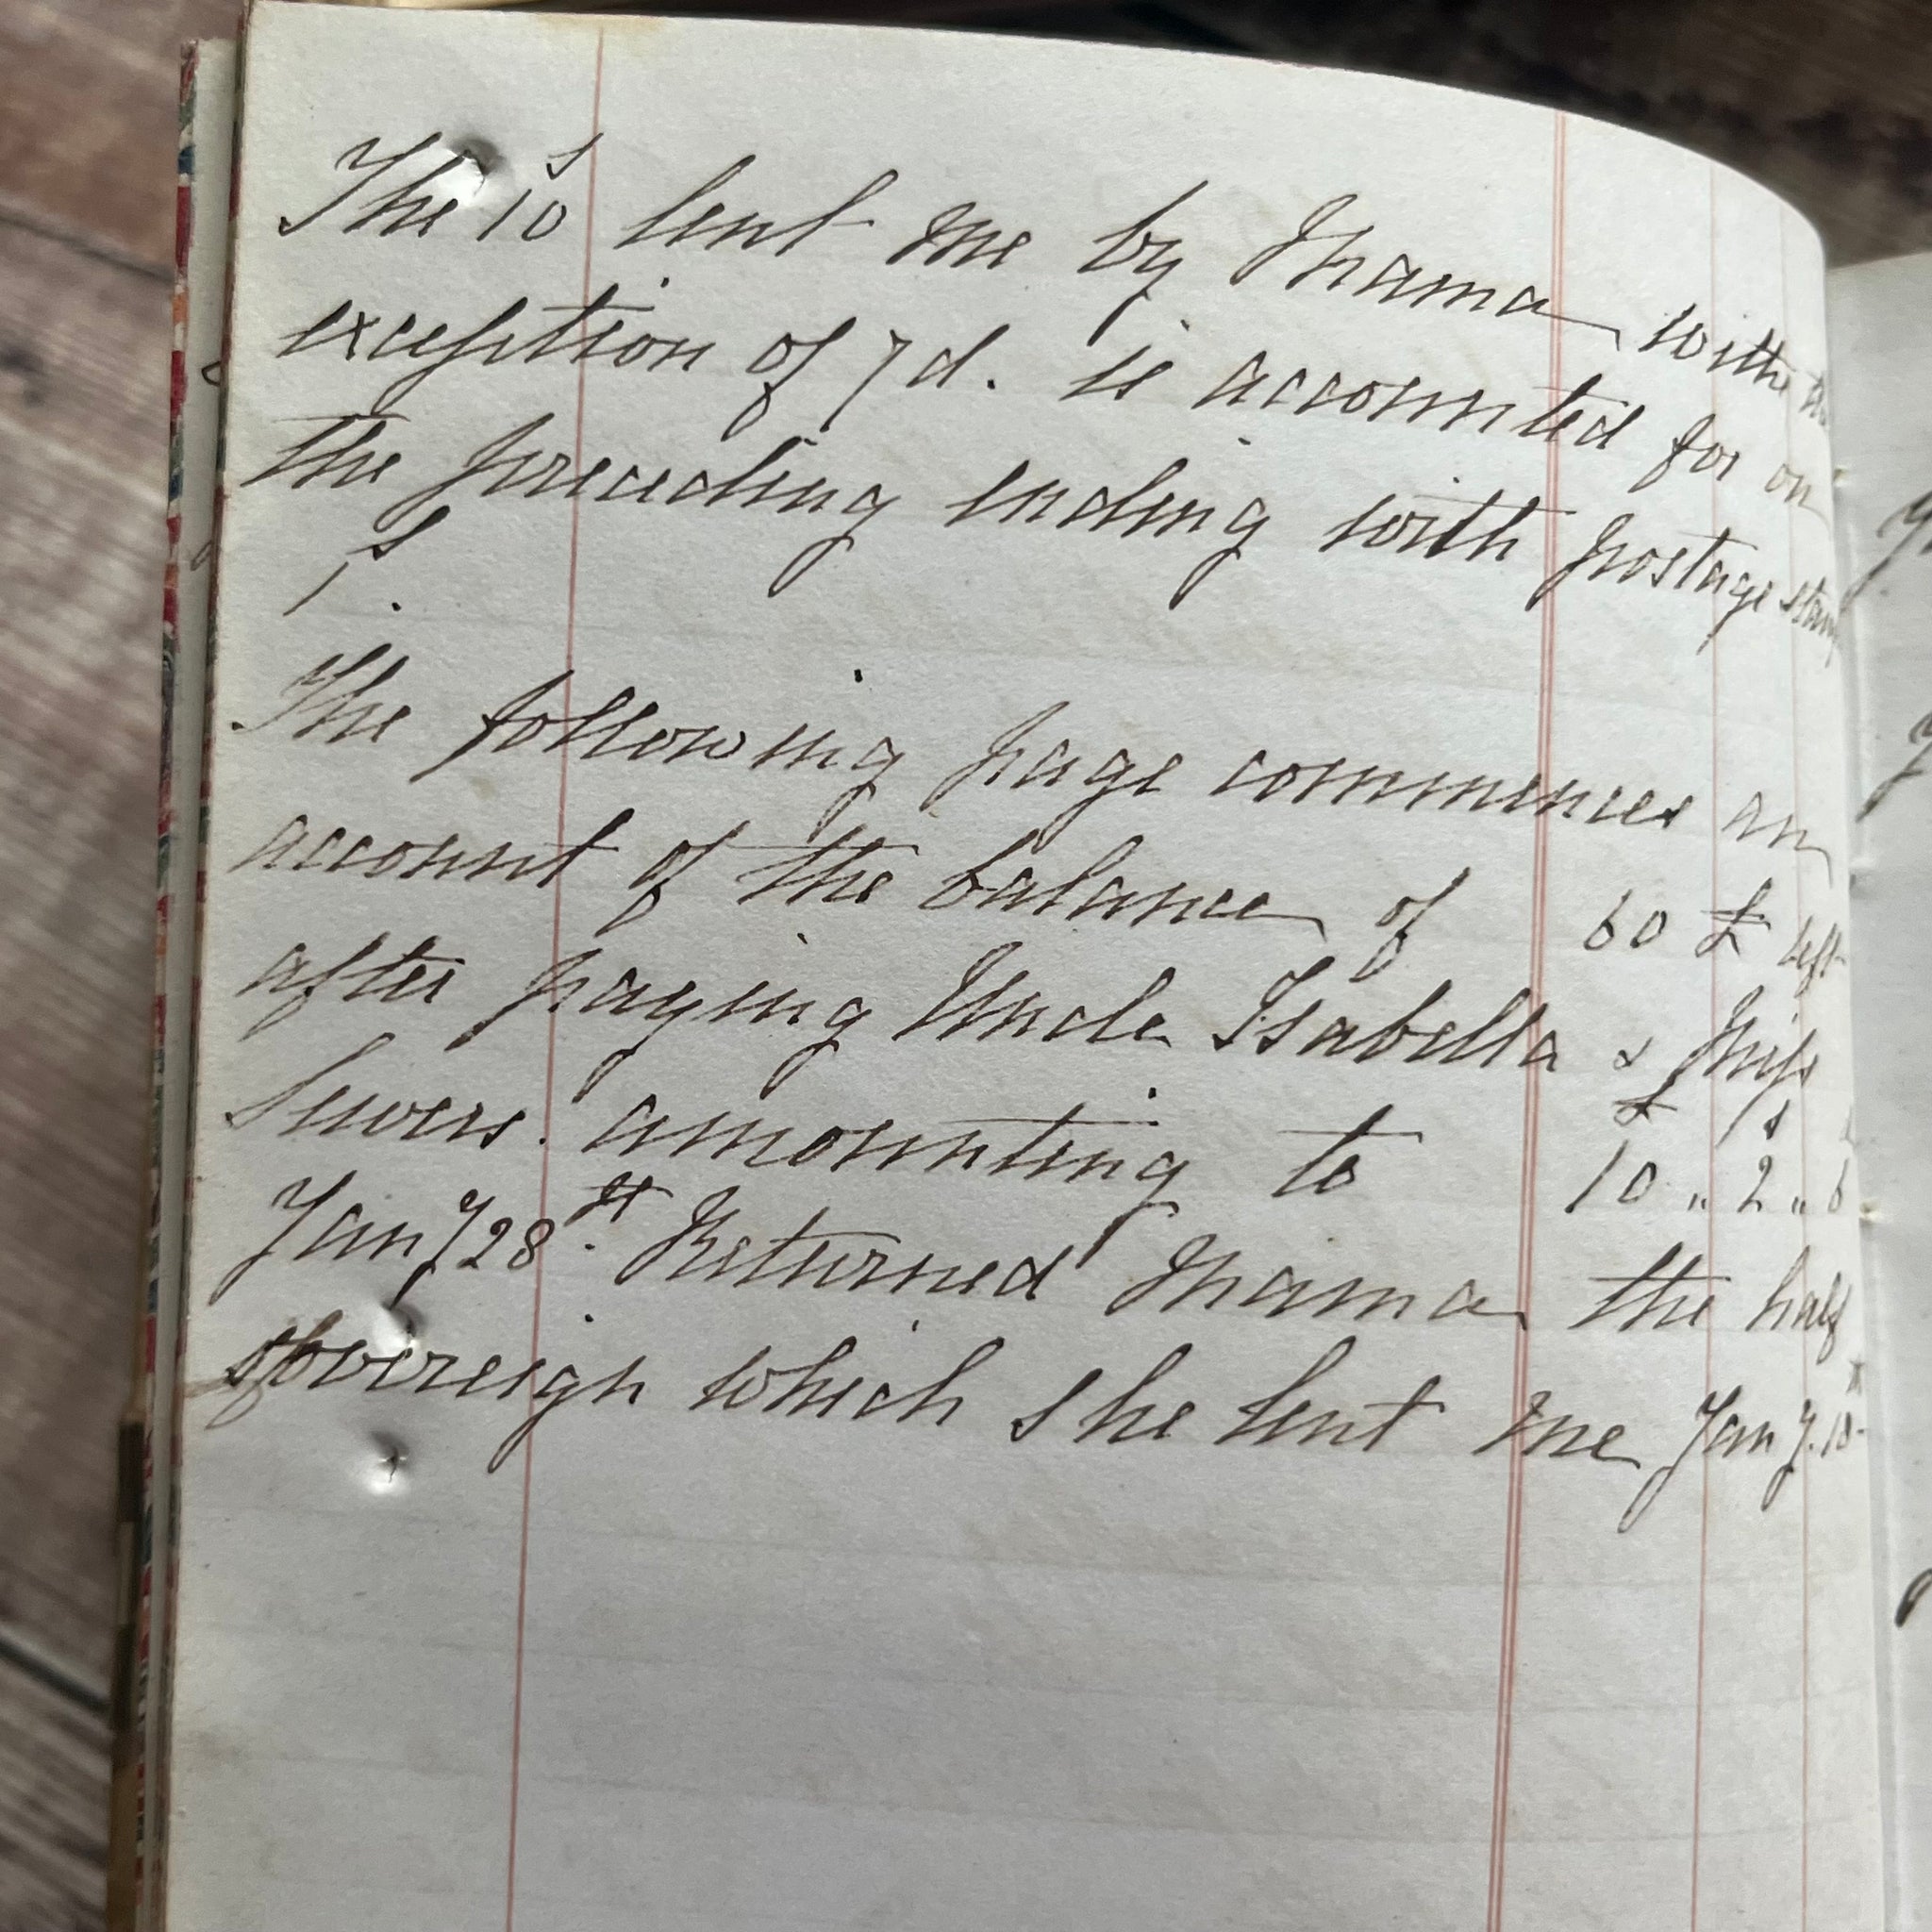 The 10s lent me by Mama with the
exception of 7d. is accounted for on
the preceding ending with postage stamp
1s.
The following page commences an
account of the balance of 60 £ left
after paying Uncle Isabella & Miss
amounting to £ 10 s „ 2 „ 6
Jany 28th. Returned Mama the half
sovereign which she lent me Jany.